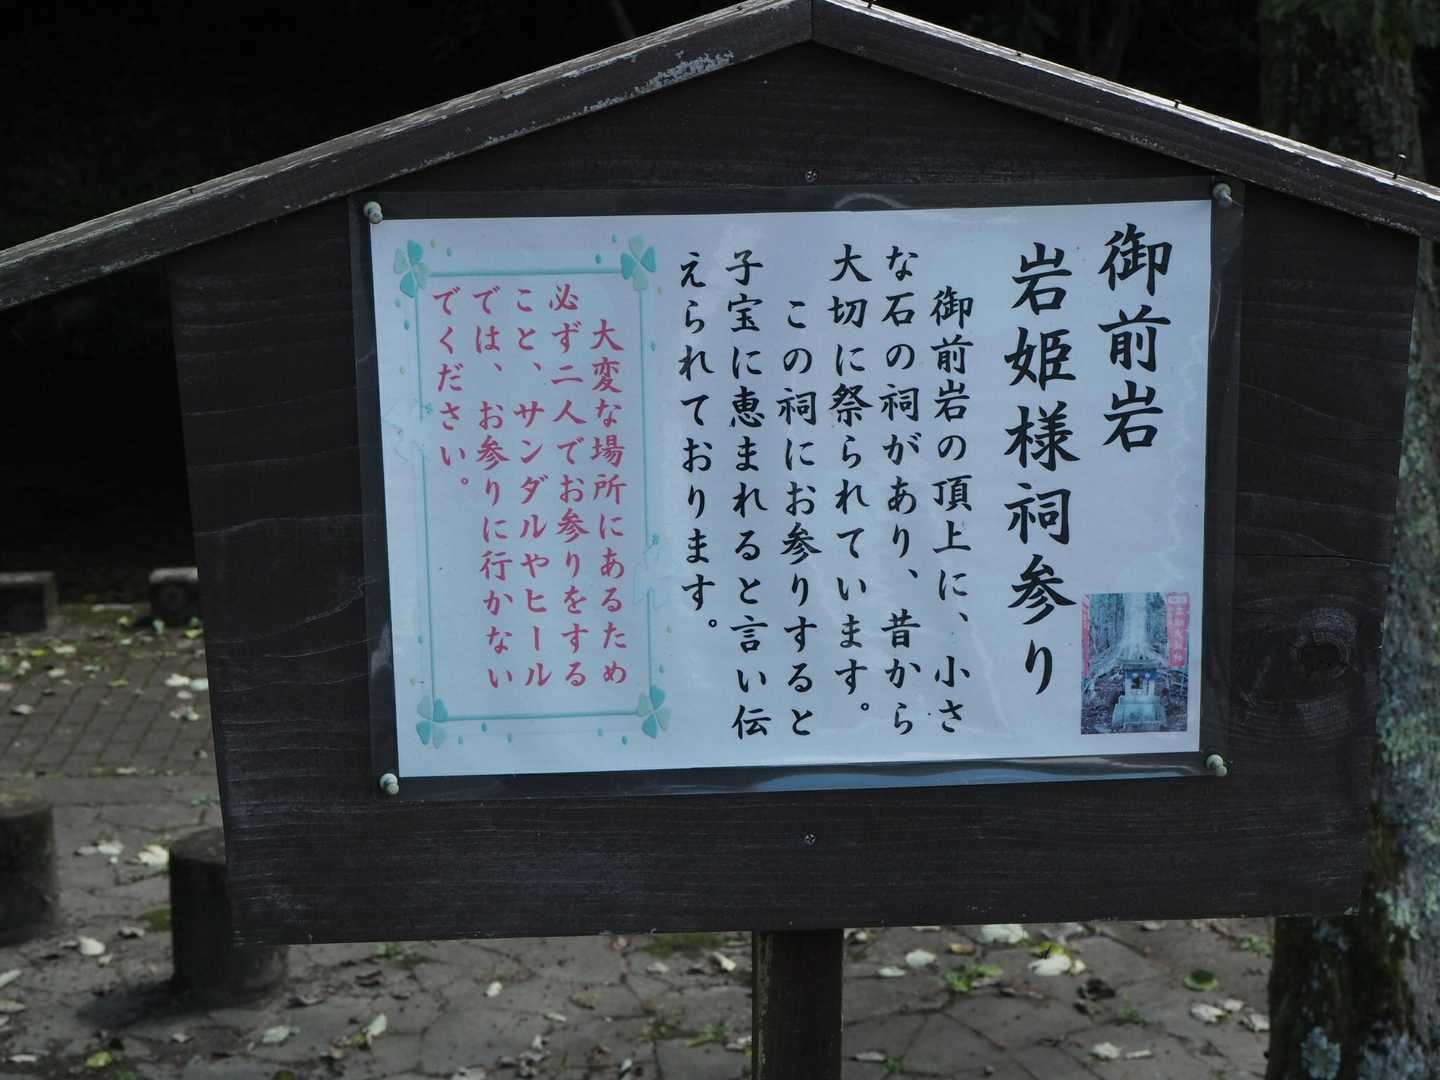 御前岩
岩姫様祠参り
御前岩の頂上に、小さ
な石の祠があり、昔から
大切に祭られています。
この祠にお参りすると
子宝に恵まれると言い伝
えられております。
大変な場所にあるため
必ず二人でお参りをする
こと、サンダルやヒール
では、お参りに行かない
でください。